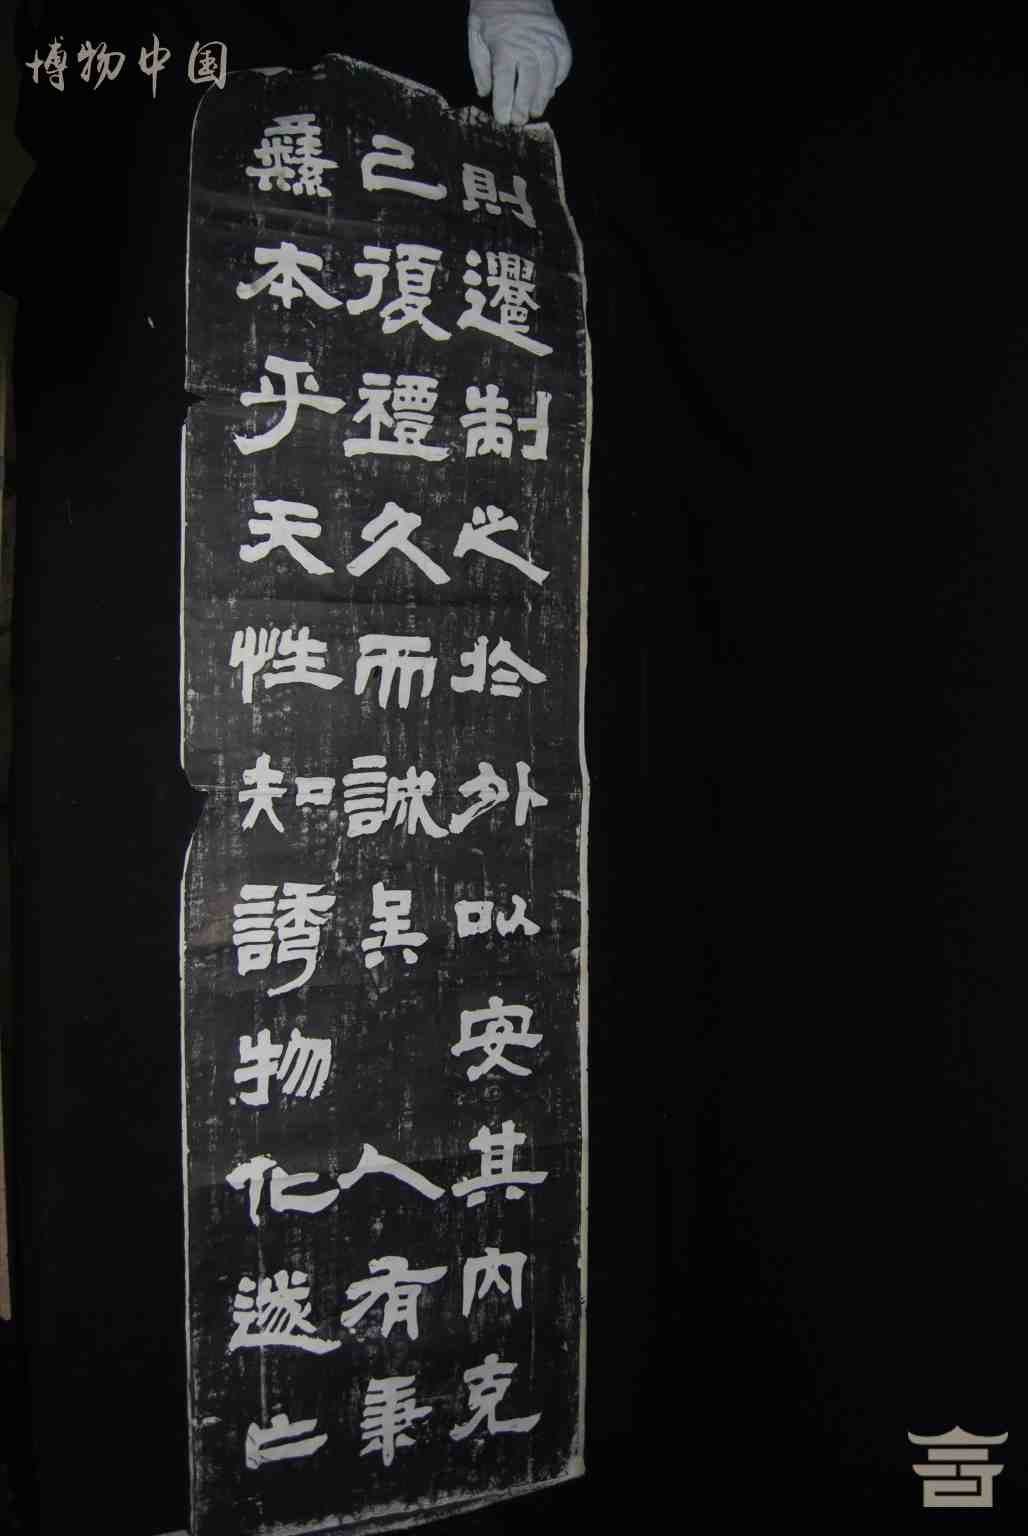 博物中国
則遷制之於外以安其内克
己復禮久而誠矣人有秉
彝本乎天性知誘物化遂亡